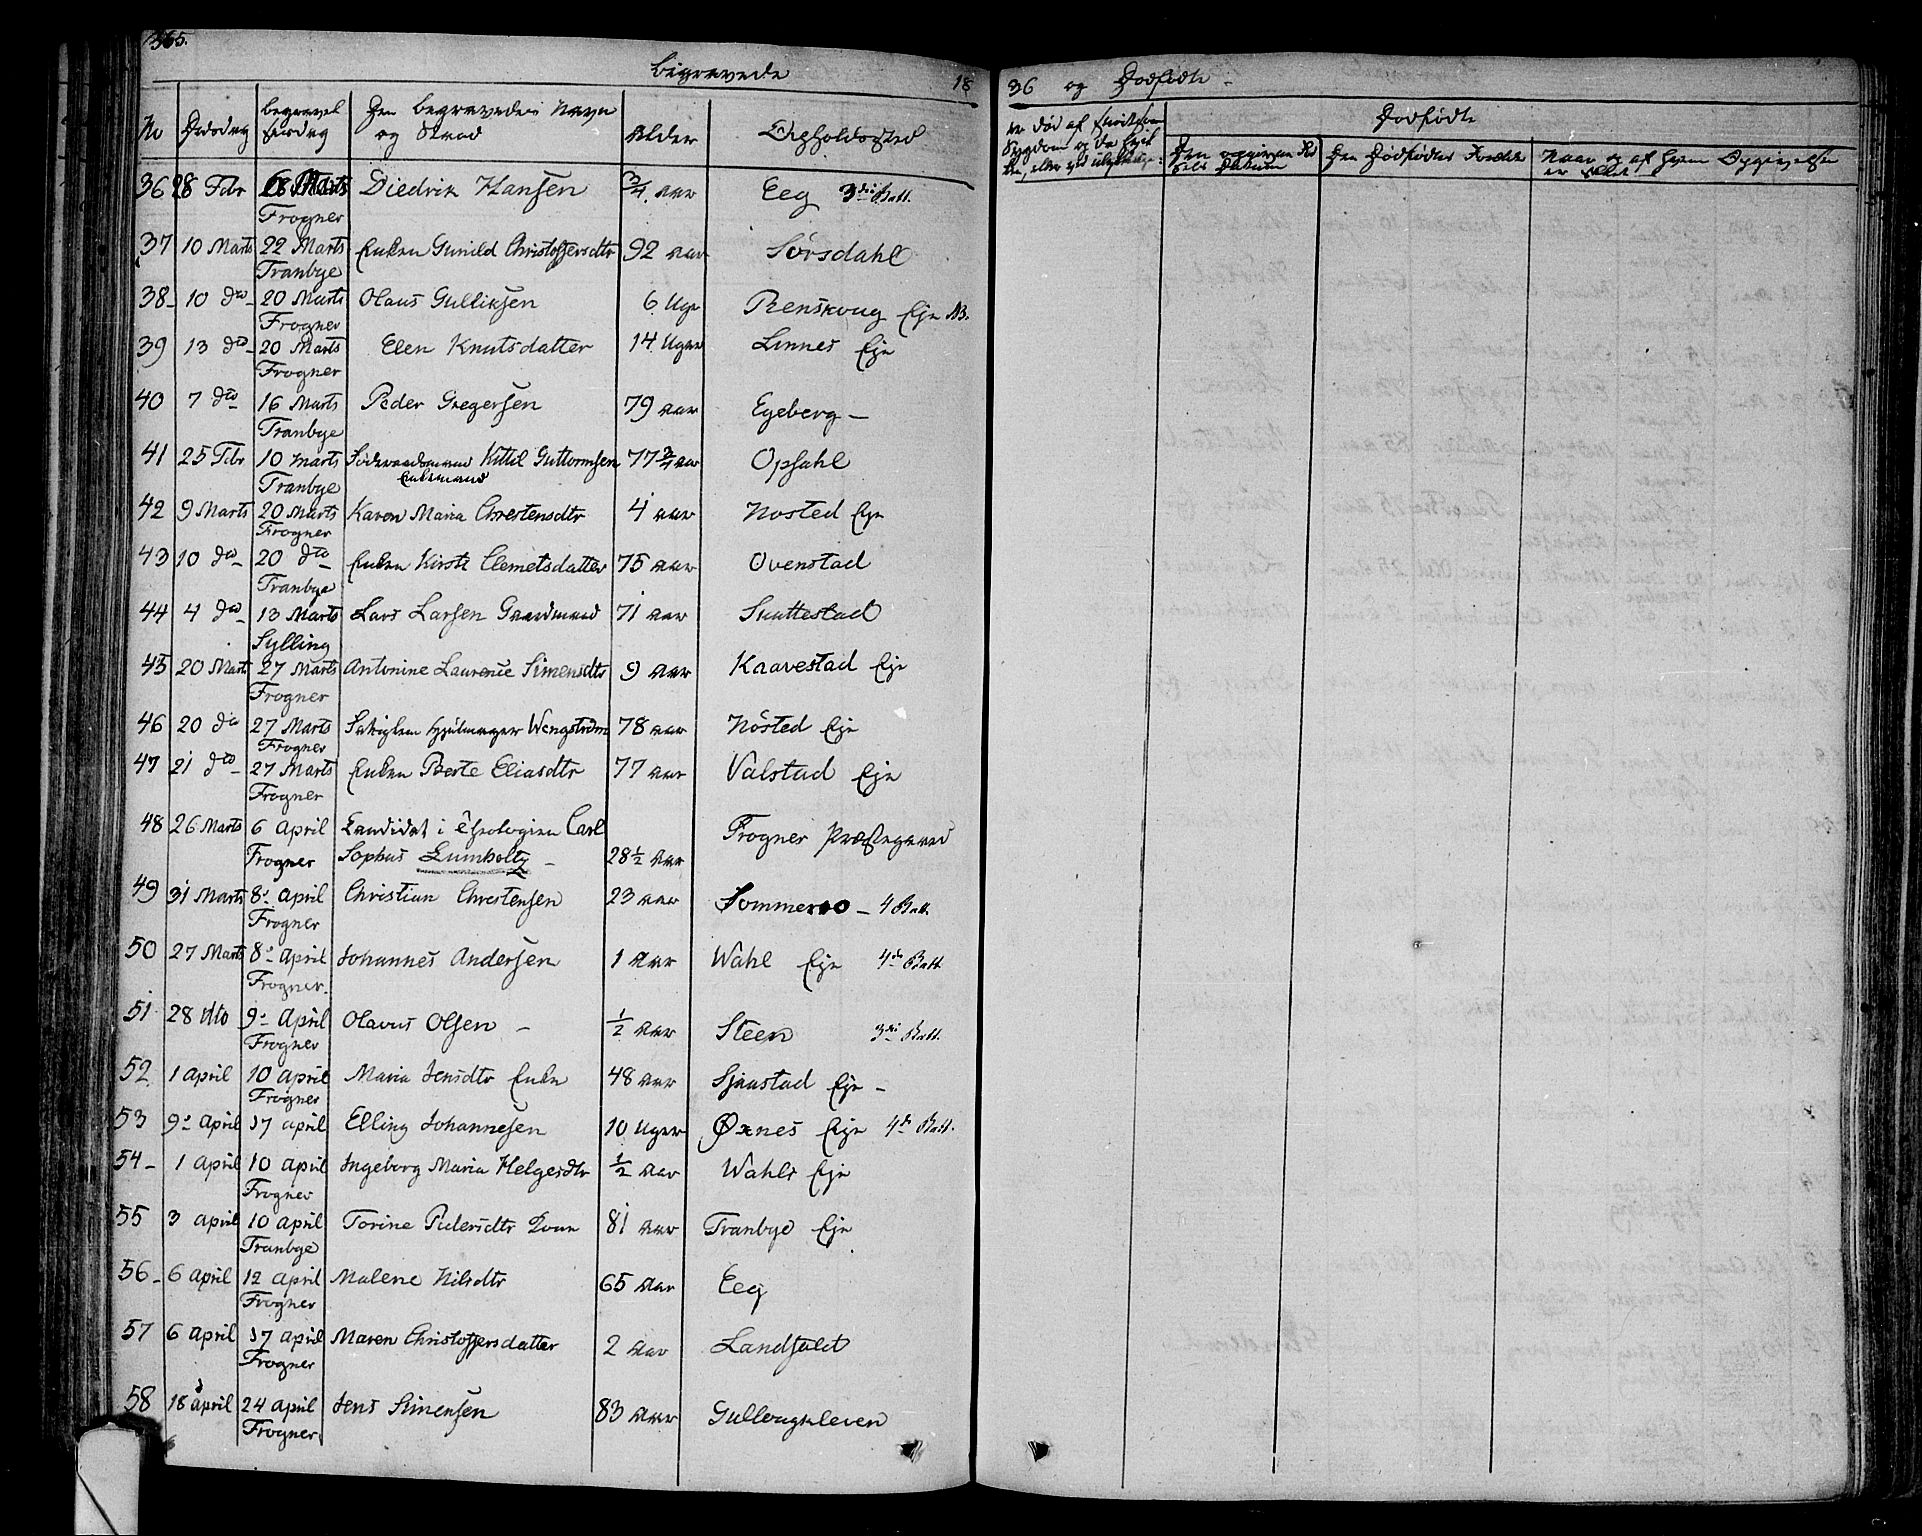 365.
begravede 18
No Dødsdag begravelsesdag Den begravedes Navn og Stand Alder Opholdssted
36 28 Febr 6 Marts Diedrik Hansen 3/4 aar Eeg 3die Batt.
Frogner
37 10 Marts 22 Marts Enken Gunild Christophersdtr 92 aar Sørsdahl
Tranbye
38 - 10 dto - 20 Marts Olaus Gulliksen 6 Uger Renskoug Eje
Frogner
39 13 dto - 20 Marts Elen Knutsdatter 14 Uger Linnes Eje
Frogner
40 7 dto - 16 Marts Peder Gregersen 79 aar Egeberg -
Tranbye
41 25 Febr 10 Marts Føderaadsmand Kittil Guttormsen 77 3/4 aar Opsahl
Tranbye Enkemand
42 9 Marts 20 Marts Karen Maria Chrestensdtr 4 aar Nosted Eje
Frogner
43 10 dto - 20 dto - Enken Kirsti Clemetsdatter 75 aar Ovenstad
Tranbye
44 4 dto - 13 Marts Lars Larsen Gaardmand 71 aar Skuttestad
Sylling
45 20 Marts 27 Marts Antonine Laurense Simensdtr 9 aar Kaavestad Eje
Frogner
46 20 dto 27 Marts Fattiglem Hjulmager Wengstrøm 78 aar Nøsted Eje
Frogner
47 21 dto - 27 Marts Enken Berte Eliasdtr 77 aar Valstad Eje
Frogner
48 26 Marts 6 April Candidat i Theologien Carl Frogner Præstegaard
Frogner Sophus Lumholtz - 28 1/2 aar
49 31 Marts 8de April Christian Chrestensen 23 aar Sommeroo - 4 Batt.
Frogner
50 27 Marts 8de April Johannes Andersen 1 aar Wahl Eje 4de Batt.
Frogner.
51 28 dto 9de April Olavus Olsen - 1/2 aar Steen 3die Batt.
Frogner
52 1 April 10 April Maria Jensdtr Enke 48 aar Sjaastad Eje -
Frogner
53 9de April 17 April Elling Johannesen 10 Uger Øxnes Eje 4de Batt.
54 - 1 April 10 April Ingeborg Maria Helgesdtr 1/2 aar Wahls Eje
Frogner
55 3 April 10 April Torine Pedersdtr Kone 81 aar Tranbye Eje
Tranbye
56 - 6 April 12 April Malene Nilsdtr 65 aar Eeg
Frogner
57 6 April 17 April Maren Christophersdatter 2 aar Landfaldt
Frogner
58 18 April 24 April Jens Simensen 83 aar Gullougkleven
Frogner
36 og Dødfødte -
Dødfødte
Den Dødfødtes Forældre